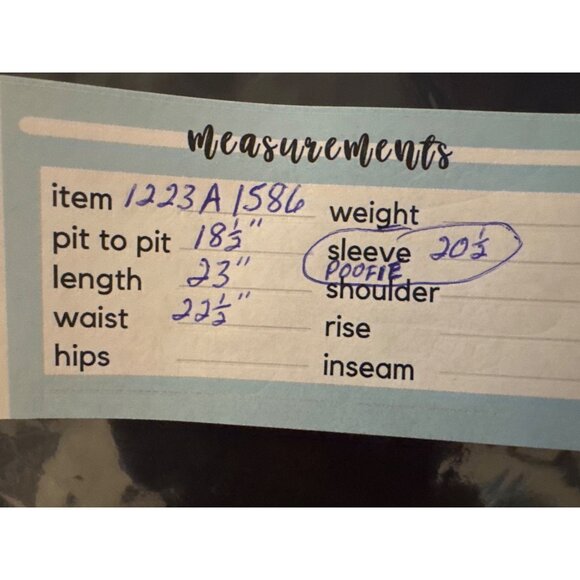 measurements
item 1223A1586
pit to pit 18½"
length 23"
waist 22½"
hips
weight
sleeve 20½
POOFIE
shoulder
rise
inseam